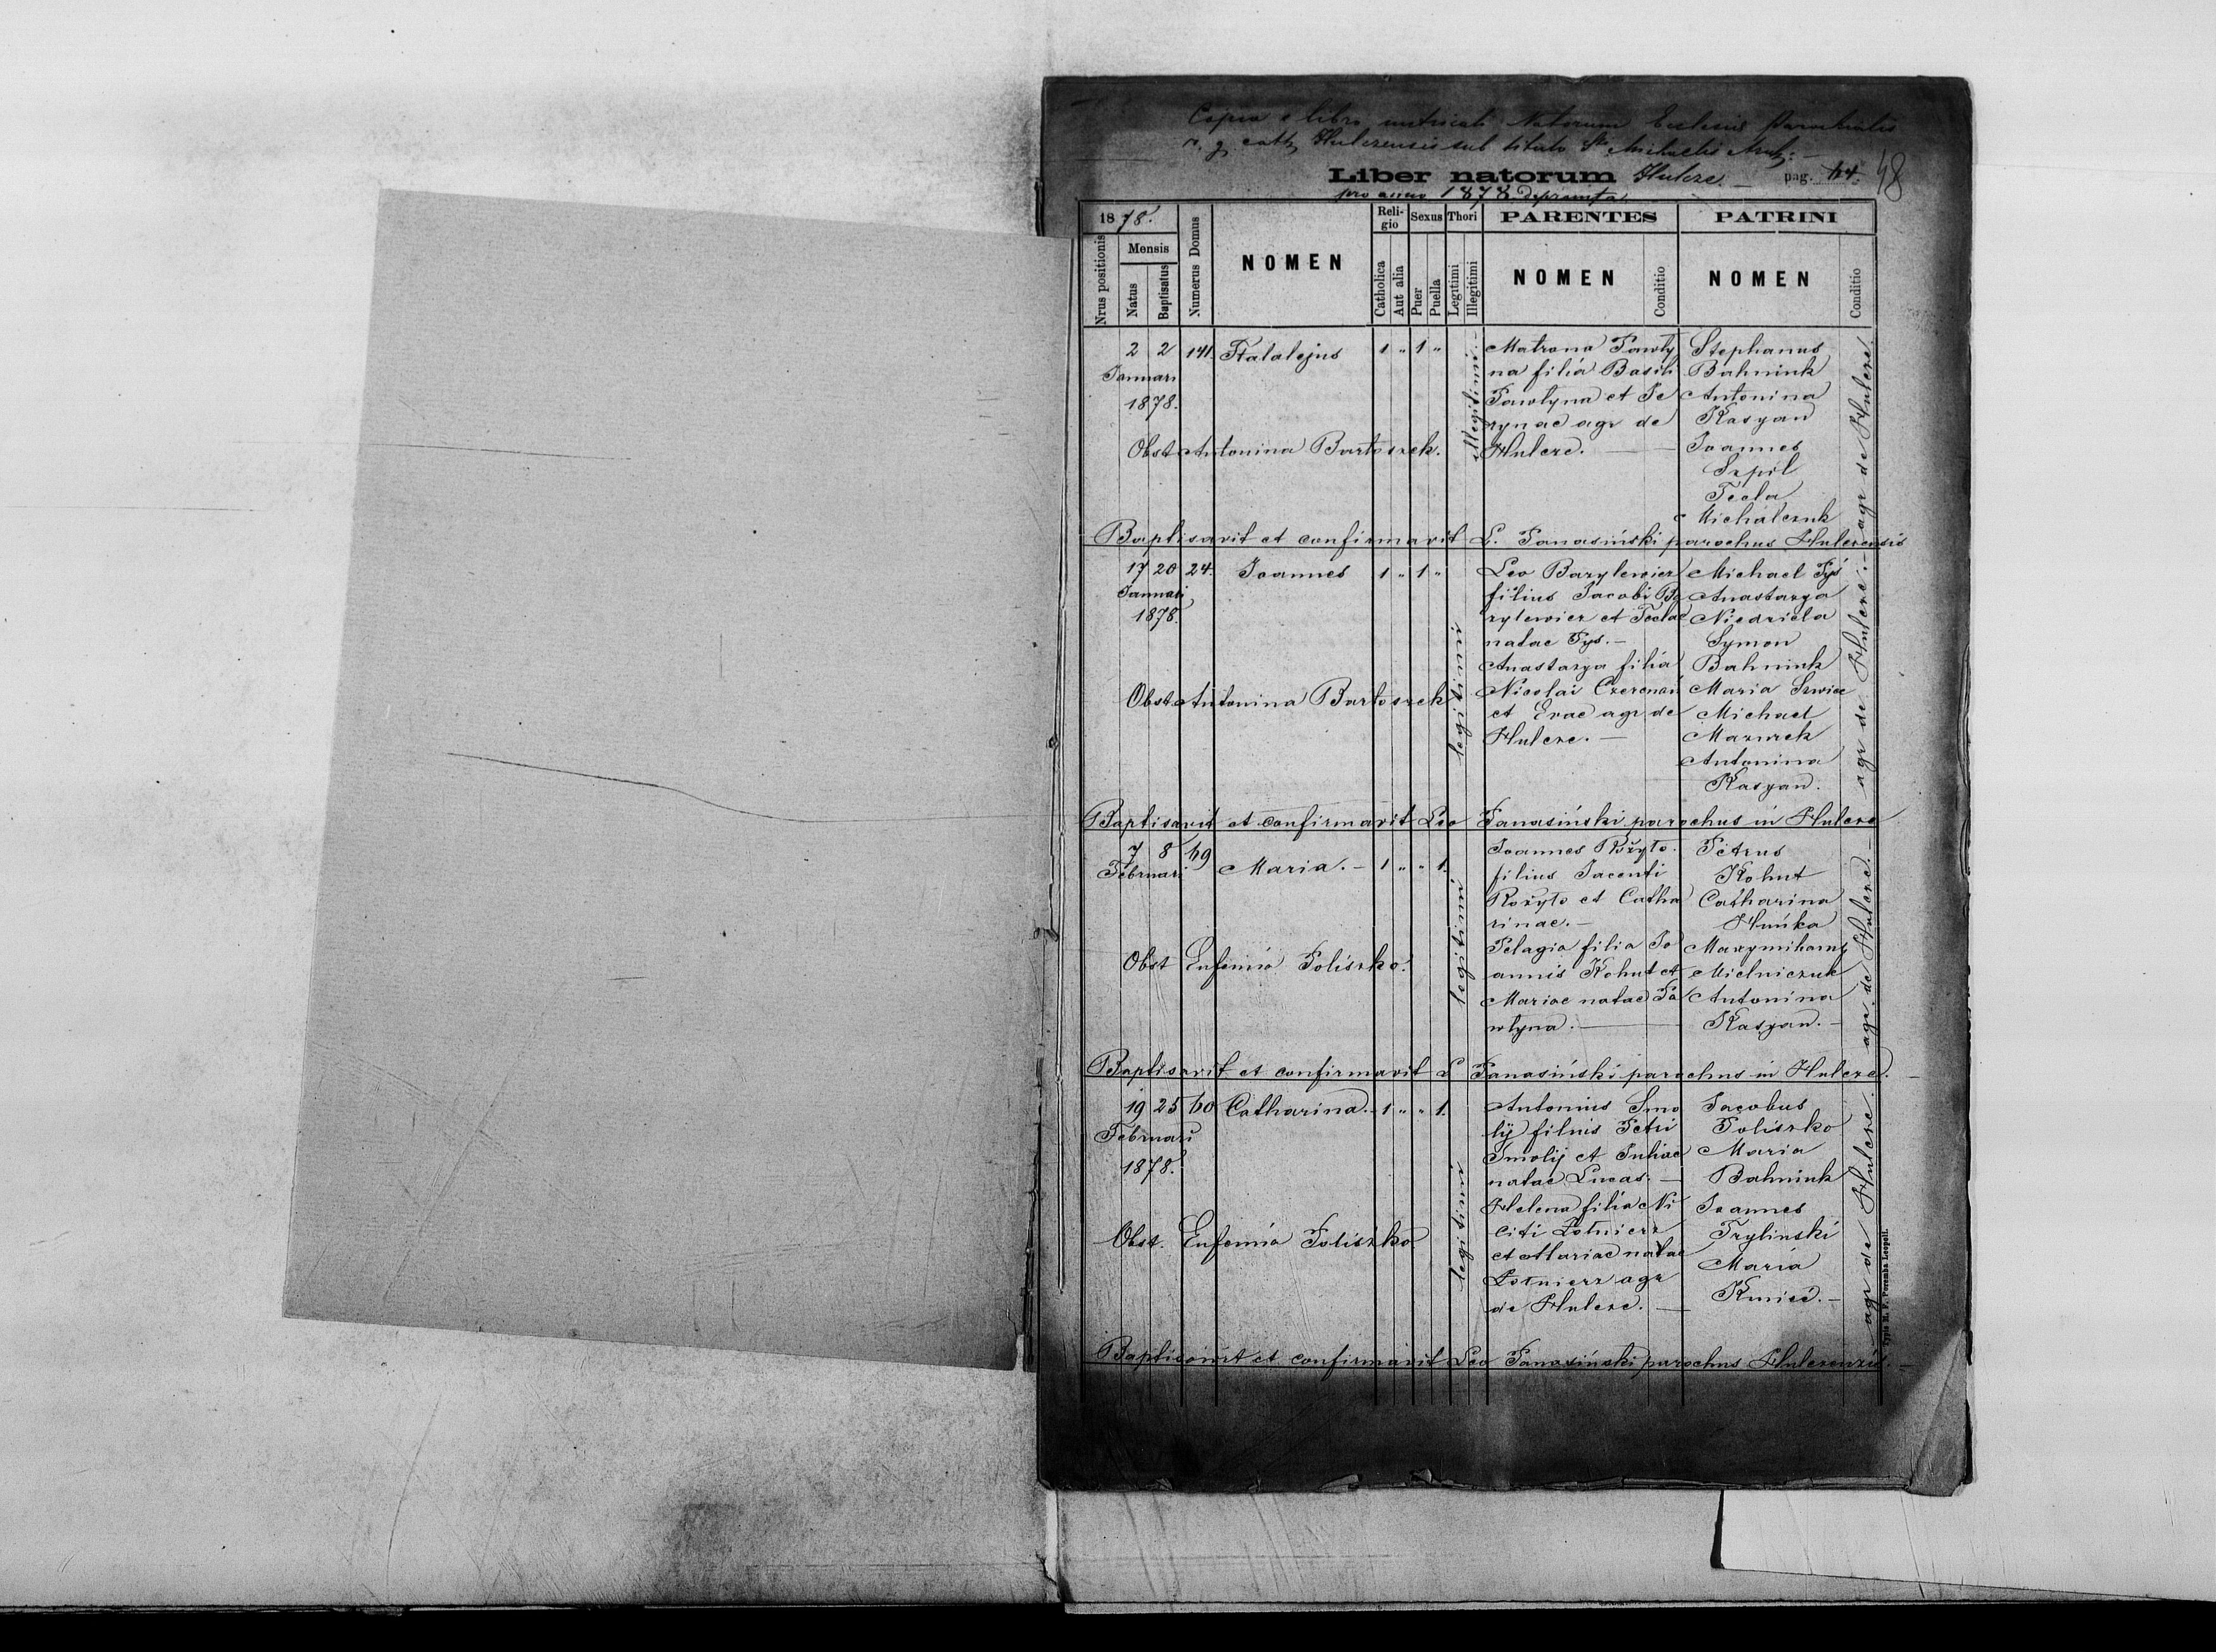 Copia e libro metricali Natorum Ecclesiae Parochialis
r. g. cath. Hulczensis sub titulo Sti Michaelis Arch: —
Liber natorum Hulcze. — pag. 48
pro anno 1878 deprompta
1878.
Nrus positionis
Mensis
Natus
Baptisatus
Numerus Domus
NOMEN
Religio
Catholica
Aut alia
Sexus
Puer
Puella
Thori
Legitimi
Illegitimi
PARENTES
NOMEN
Conditio
PATRINI
NOMEN
Conditio
2 2 141 Falalejus 1 " 1 "
Januari
1878.
Obst Antonina Bartoszek.
illegitimi. —
Matrona Pawły
na filia Basili
Pawłyna et Je
rynae agr de
Hulcze. —
Stephanus
Bahniuk
Antonina
Kasyan
Joannes
Szpil
Tecla
Michalczuk
agr de Hulcze.
Baptisavit et confirmavit L. Panasiński parochus Hulczensis
17 20 24. Joannes 1 " 1 "
Januari
1878.
Obst Antonina Bartoszek
legitimi
Leo Barylewicz
filius Jacobi Ba
rylewicz et Teclae
natae Tys. —
Anastazya filia
Nicolai
et Evae agr de
Hulcze. —
Michael Tys
Anastazya
Niedziela
Symon
Bahniuk
Maria Szwiec
Michael
Mazurek
Antonina
Kasyan.
agr de Hulcze. —
Baptisavit et confirmavit Leo Panasiński parochus in Hulcze
7 8 69 Maria. — 1 " " 1.
Februari
Obst Eufemia Poliszko.
legitimi
Joannes Rożyło
filius Jacenti
Rożyło et Catha
rinae. —
Pelagia filia Jo
annis Kohut et
Mariae natae Pa
włyna. —
Petrus
Kohut
Catharina
Huńka
Maxymilianus
Mielniczuk
Antonina
Kasyan. —
agr. de Hulcze. —
Baptisavit et confirmavit L Panasiński parochus in Hulcze. —
19 25 60 Catharina. 1 " " 1.
Februari
1878.
Obst. Eufemia Poliszko
legitimi
Antonius Smo
lij filius Petri
Smolij et Juliae
natae Lucas. —
Helena filia Ni
citi Łotnierz
et Mariae natae
Łotnierz agr
de Hulcze. —
Jacobus
Poliszko
Maria
Bahniuk
Joannes
Trylinski
Maria
Kmieć. —
agr de Hulcze.
Baptisavit et confirmavit Leo Panasiński parochus Hulczensis. —
Typis H. F. Poremba Leopoli.